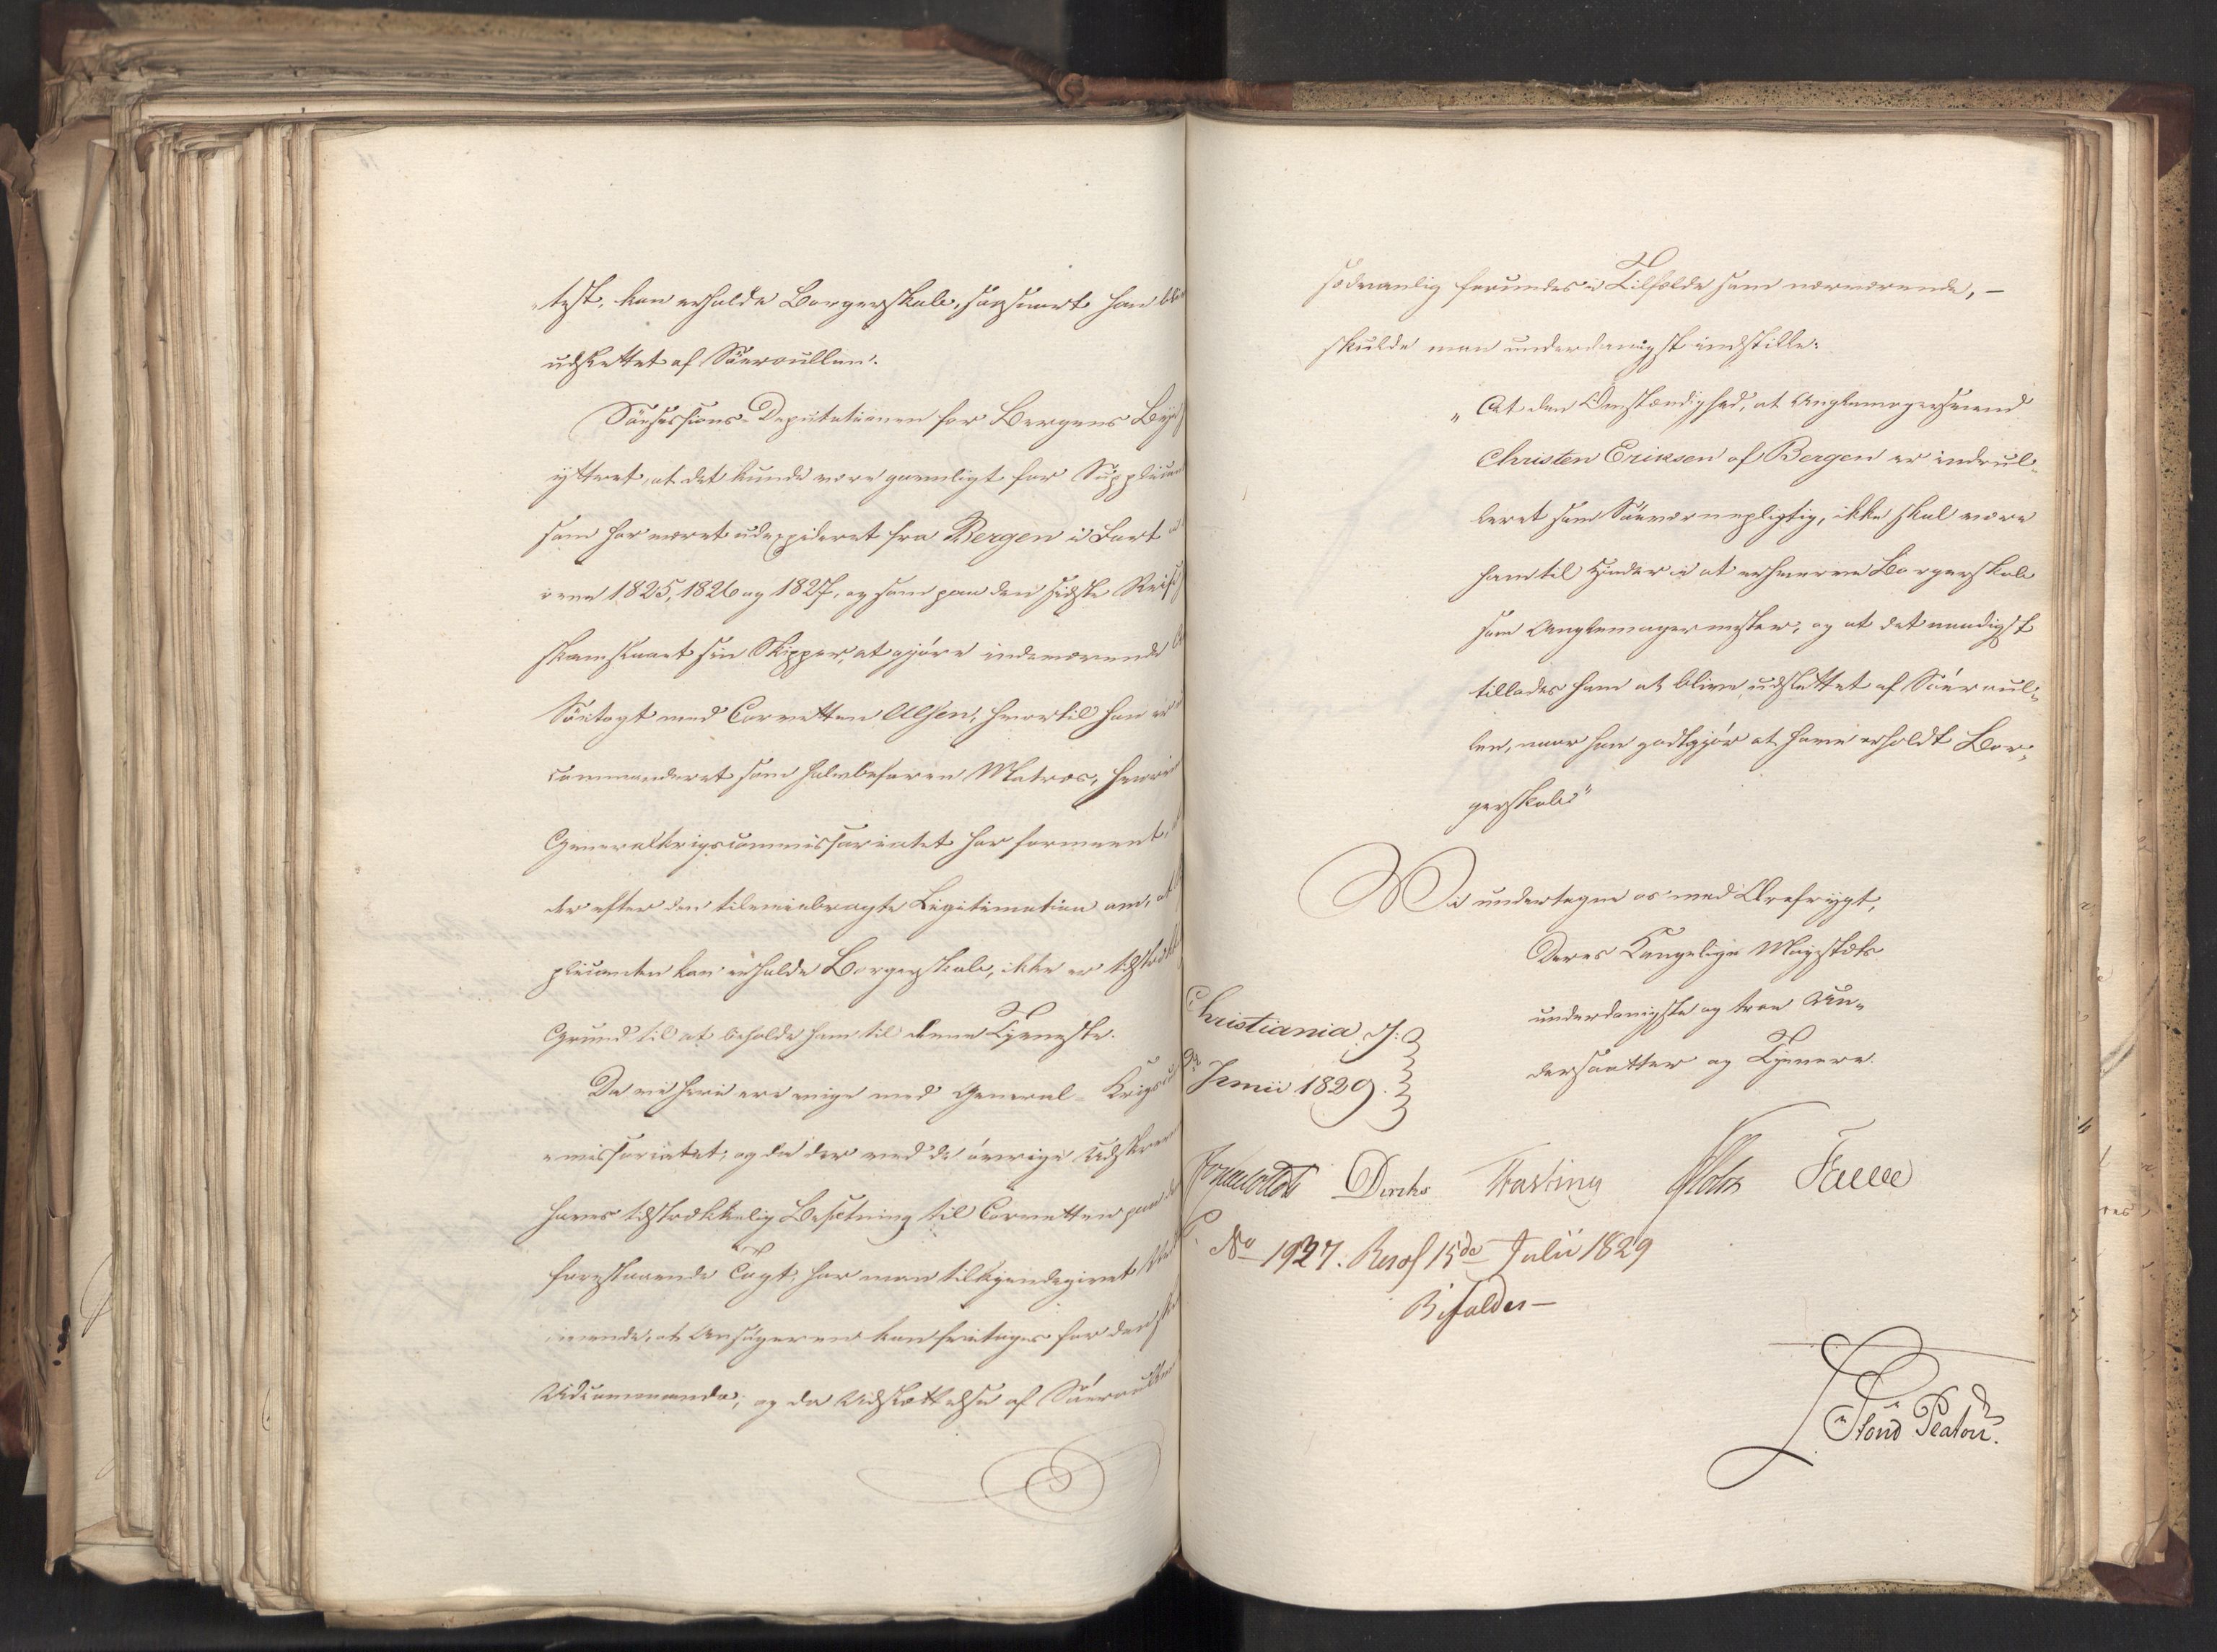 test, kan erholde Borgerskab, saasnart han bliv
udslettet af Söeroullen.
Söesessions-Deputationen for Bergens By
yttret, at det kunde være gavnligt for Supplican
som har været udexpideret fra Bergen i Fart
i rene 1825, 1826 og 1827, og som paa den sidste Reise
skamslaaet sin Skipper, at gjöre indeværende
Söetogt med Corvetten Ellsen, hvortil han er
commanderet som halvbefaren Matros, hvori
Generalkrigscommissariatet har formeent,
der efter den tilveiebragte Legitimation om, at
plicanten kan erholde Borgerskab, ikke er tilstræk
Grund til at beholde ham til denne Tjeneste.
Da vi heri ere enige med General-Krigsco
missariatet, og da der ved de övrige Udskrevne
haves tilstrækkelig Besætning til Corvetten paa
forestaaende Togt, har man tilkjendegivet
mende, at Ansögeren kan fritages for den
Udcommando; og da Udslættelse af Söeroullen
sædvanlig forundes i Tilfælde som nærværende, –
skulde man underdanigst indstille:
"At den Omstændighed, at Anglemagersvend
Christen Eriksen af Bergen er indrul-
leret som Söeværnepligtig, ikke skal være
ham til Hinder i at erhverve Borgerskab
som Anglemagermester, og at det naadigst
tillades ham at blive udslettet af Söeroul-
len, naar han godtgjör at have erholdt Bor-
gerskab"
Vi undertegne os med Ærefrygt,
Deres Kongelige Majestæts
underdanigste og troe Un-
dersaatter og Tjenere.
Christiania d:
9de Junii 1829.
Diriks Fasting Holst
No 1927. Resol 15de Julii 1829
Bifaldes –